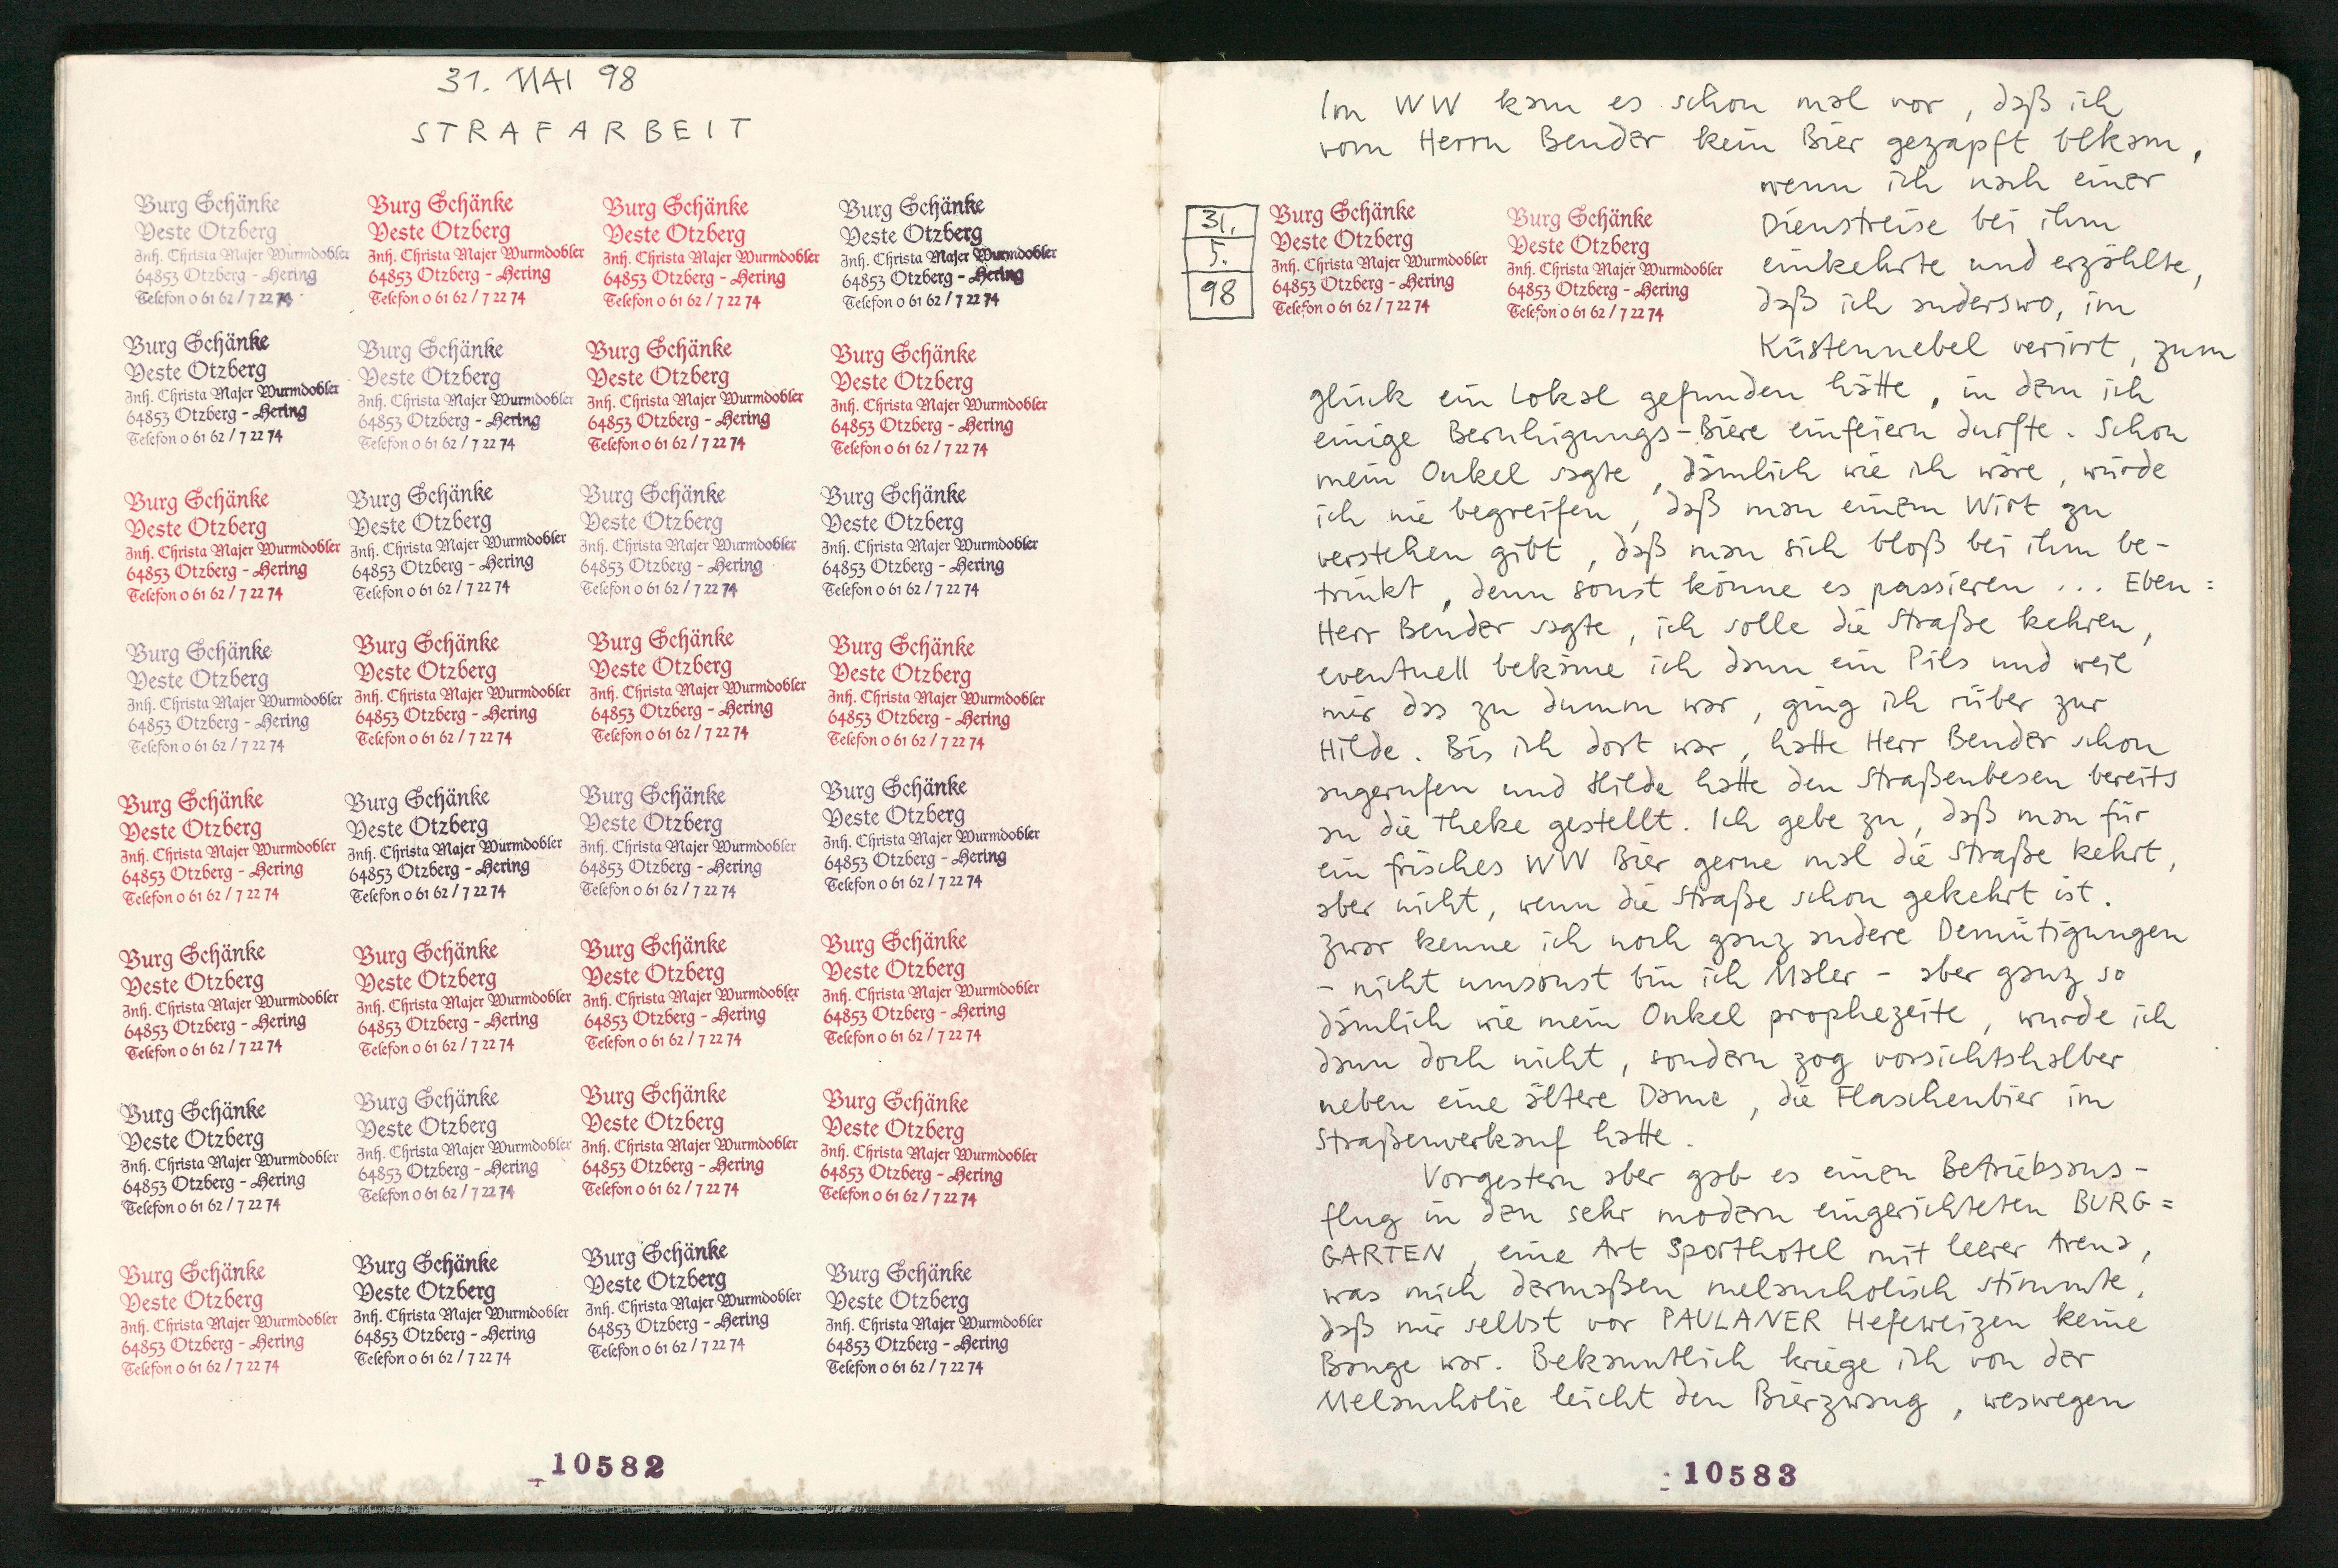 31. MAI 98
STRAFARBEIT
Burg Schänke
Veste Otzberg
Inh. Christa Majer Wurmdobler
64853 Otzberg - Hering
Telefon 0 61 62 / 7 22 74
Burg Schänke
Veste Otzberg
Inh. Christa Majer Wurmdobler
64853 Otzberg - Hering
Telefon 0 61 62 / 7 22 74
Burg Schänke
Veste Otzberg
Inh. Christa Majer Wurmdobler
64853 Otzberg - Hering
Telefon 0 61 62 / 7 22 74
Burg Schänke
Veste Otzberg
Inh. Christa Majer Wurmdobler
64853 Otzberg - Hering
Telefon 0 61 62 / 7 22 74
Burg Schänke
Veste Otzberg
Inh. Christa Majer Wurmdobler
64853 Otzberg - Hering
Telefon 0 61 62 / 7 22 74
Burg Schänke
Veste Otzberg
Inh. Christa Majer Wurmdobler
64853 Otzberg - Hering
Telefon 0 61 62 / 7 22 74
Burg Schänke
Veste Otzberg
Inh. Christa Majer Wurmdobler
64853 Otzberg - Hering
Telefon 0 61 62 / 7 22 74
Burg Schänke
Veste Otzberg
Inh. Christa Majer Wurmdobler
64853 Otzberg - Hering
Telefon 0 61 62 / 7 22 74
Burg Schänke
Veste Otzberg
Inh. Christa Majer Wurmdobler
64853 Otzberg - Hering
Telefon 0 61 62 / 7 22 74
Burg Schänke
Veste Otzberg
Inh. Christa Majer Wurmdobler
64853 Otzberg - Hering
Telefon 0 61 62 / 7 22 74
Burg Schänke
Veste Otzberg
Inh. Christa Majer Wurmdobler
64853 Otzberg - Hering
Telefon 0 61 62 / 7 22 74
Burg Schänke
Veste Otzberg
Inh. Christa Majer Wurmdobler
64853 Otzberg - Hering
Telefon 0 61 62 / 7 22 74
Burg Schänke
Veste Otzberg
Inh. Christa Majer Wurmdobler
64853 Otzberg - Hering
Telefon 0 61 62 / 7 22 74
Burg Schänke
Veste Otzberg
Inh. Christa Majer Wurmdobler
64853 Otzberg - Hering
Telefon 0 61 62 / 7 22 74
Burg Schänke
Veste Otzberg
Inh. Christa Majer Wurmdobler
64853 Otzberg - Hering
Telefon 0 61 62 / 7 22 74
Burg Schänke
Veste Otzberg
Inh. Christa Majer Wurmdobler
64853 Otzberg - Hering
Telefon 0 61 62 / 7 22 74
Burg Schänke
Veste Otzberg
Inh. Christa Majer Wurmdobler
64853 Otzberg - Hering
Telefon 0 61 62 / 7 22 74
Burg Schänke
Veste Otzberg
Inh. Christa Majer Wurmdobler
64853 Otzberg - Hering
Telefon 0 61 62 / 7 22 74
Burg Schänke
Veste Otzberg
Inh. Christa Majer Wurmdobler
64853 Otzberg - Hering
Telefon 0 61 62 / 7 22 74
Burg Schänke
Veste Otzberg
Inh. Christa Majer Wurmdobler
64853 Otzberg - Hering
Telefon 0 61 62 / 7 22 74
Burg Schänke
Veste Otzberg
Inh. Christa Majer Wurmdobler
64853 Otzberg - Hering
Telefon 0 61 62 / 7 22 74
Burg Schänke
Veste Otzberg
Inh. Christa Majer Wurmdobler
64853 Otzberg - Hering
Telefon 0 61 62 / 7 22 74
Burg Schänke
Veste Otzberg
Inh. Christa Majer Wurmdobler
64853 Otzberg - Hering
Telefon 0 61 62 / 7 22 74
Burg Schänke
Veste Otzberg
Inh. Christa Majer Wurmdobler
64853 Otzberg - Hering
Telefon 0 61 62 / 7 22 74
Burg Schänke
Veste Otzberg
Inh. Christa Majer Wurmdobler
64853 Otzberg - Hering
Telefon 0 61 62 / 7 22 74
Burg Schänke
Veste Otzberg
Inh. Christa Majer Wurmdobler
64853 Otzberg - Hering
Telefon 0 61 62 / 7 22 74
Burg Schänke
Veste Otzberg
Inh. Christa Majer Wurmdobler
64853 Otzberg - Hering
Telefon 0 61 62 / 7 22 74
Burg Schänke
Veste Otzberg
Inh. Christa Majer Wurmdobler
64853 Otzberg - Hering
Telefon 0 61 62 / 7 22 74
Burg Schänke
Veste Otzberg
Inh. Christa Majer Wurmdobler
64853 Otzberg - Hering
Telefon 0 61 62 / 7 22 74
Burg Schänke
Veste Otzberg
Inh. Christa Majer Wurmdobler
64853 Otzberg - Hering
Telefon 0 61 62 / 7 22 74
Burg Schänke
Veste Otzberg
Inh. Christa Majer Wurmdobler
64853 Otzberg - Hering
Telefon 0 61 62 / 7 22 74
Burg Schänke
Veste Otzberg
Inh. Christa Majer Wurmdobler
64853 Otzberg - Hering
Telefon 0 61 62 / 7 22 74
10582
Im WW kam es schon mal vor, daß ich
vom Herrn Bender kein Bier gezapft bekam,
31.
5.
98
Burg Schänke
Veste Otzberg
Inh. Christa Majer Wurmdobler
64853 Otzberg - Hering
Telefon 0 61 62 / 7 22 74
Burg Schänke
Veste Otzberg
Inh. Christa Majer Wurmdobler
64853 Otzberg - Hering
Telefon 0 61 62 / 7 22 74
wenn ich nach einer
Dienstreise bei ihm
einkehrte und erzählte,
daß ich anderswo, im
Küstennebel verirrt, zum
Glück ein Lokal gefunden hätte, in dem ich
einige Beruhigungs-Biere einfeiern durfte. Schon
mein Onkel sagte, dämlich wie ich wäre, würde
ich nie begreifen, daß man einem Wirt zu
verstehen gibt, daß man sich bloß bei ihm be-
trinkt, denn sonst könne es passieren ... Eben:
Herr Bender sagte, ich solle die Straße kehren,
eventuell bekäme ich dann ein Pils und weil
mir das zu dumm war, ging ich rüber zur
Hilde. Bis ich dort war, hatte Herr Bender schon
angerufen und Hilde hatte den Straßenbesen bereits
an die Theke gestellt. Ich gebe zu, daß man für
ein frisches WW Bier gerne mal die Straße kehrt,
aber nicht, wenn die Straße schon gekehrt ist.
Zwar kenne ich noch ganz andere Demütigungen
- nicht umsonst bin ich Maler - aber ganz so
dämlich wie mein Onkel prophezeite, wurde ich
dann doch nicht, sondern zog vorsichtshalber
neben eine ältere Dame, die Flaschenbier im
Straßenverkauf hatte.
Vorgestern aber gab es einen Betriebsaus-
flug in den sehr modern eingerichteten BURG=
GARTEN, eine Art Sporthotel mit leerer Arena,
was mich dermaßen melancholisch stimmte,
daß mir selbst vor PAULANER Hefeweizen keine
Bange war. Bekanntlich kriege ich von der
Melancholie leicht den Bierzwang, weswegen
10583